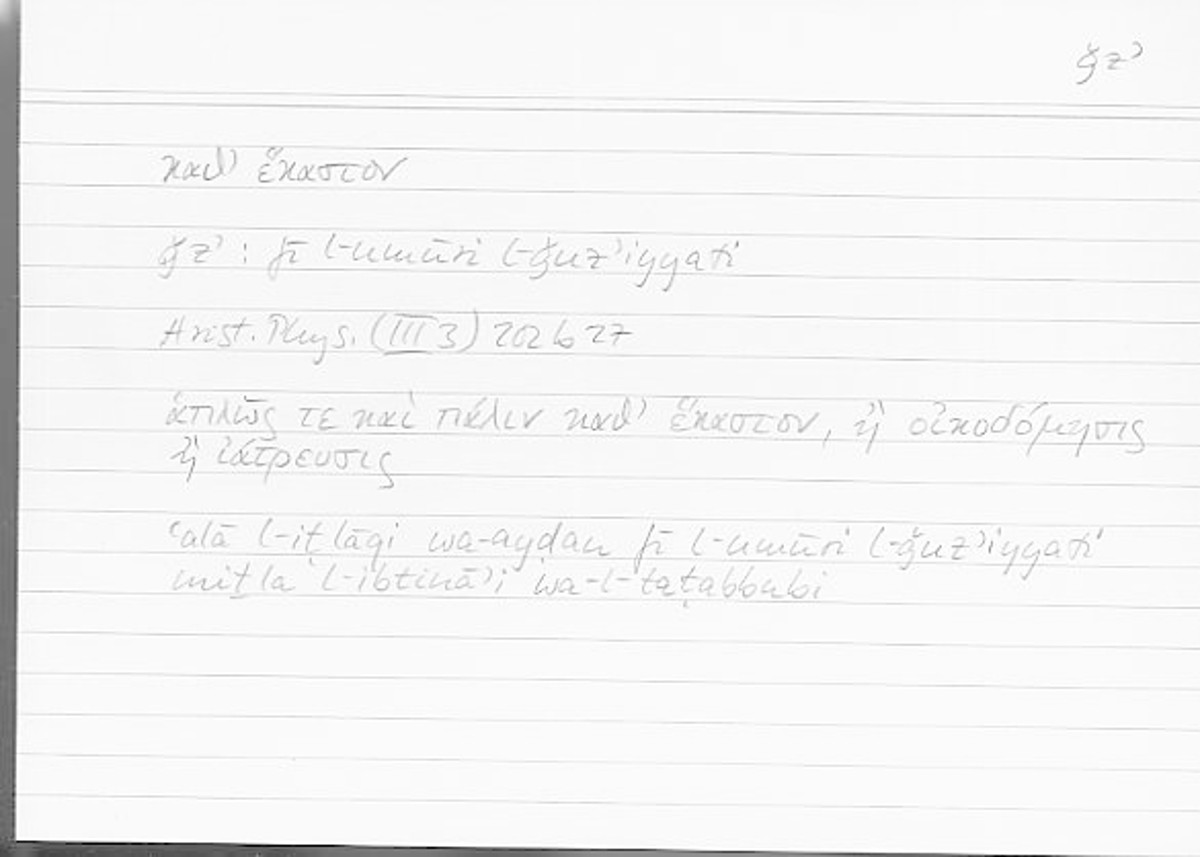 ǧzʾ
καθ' ἕκαστον
ǧzʾ : fī l-umūri l-ǧuzʾiyyati
Arist. Phys. (III 3) 202 b 27
ἁπλῶς τε καὶ πάλιν καθ' ἕκαστον, ἢ οἰκοδόμησις
ἢ ἰάτρευσις
ʿalā l-iṭlāqi wa-ayḍan fī l-umūri l-ǧuzʾiyyati
miṯla l-ibtināʾi wa-l-taṭabbubi